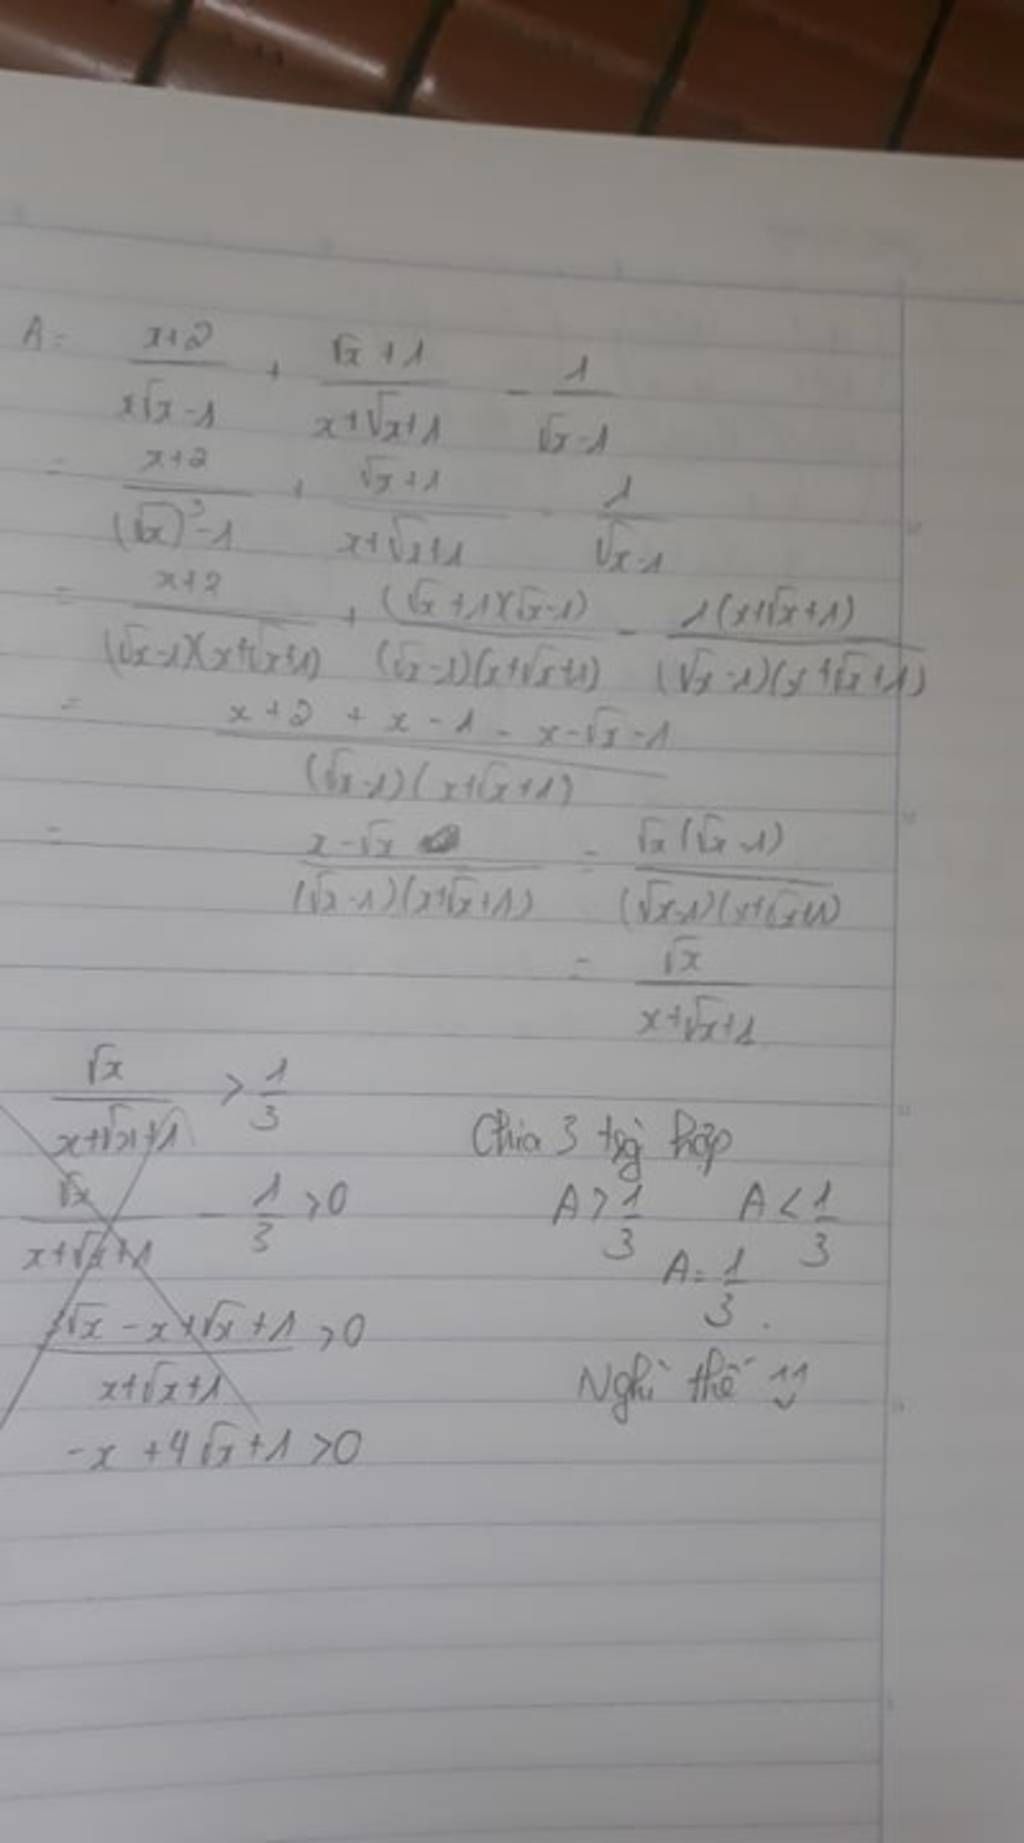 A = (x+2)/(x√x-1) + (√x+1)/(x+√x+1) - 1/(√x-1)
= (x+2)/((√x)³-1) + (√x+1)/(x+√x+1) - 1/(√x-1)
= (x+2)/((√x-1)(x+√x+1)) + ((√x+1)(√x-1))/((√x-1)(x+√x+1)) - 1(x+√x+1)/((√x-1)(x+√x+1))
= (x+2+x-1-x-√x-1)/((√x-1)(x+√x+1))
= (x-√x)/((√x-1)(x+√x+1)) = √x(√x-1)/((√x-1)(x+√x+1))
= √x/(x+√x+1)
√x/(x+√x+1) > 1/3
√x/(x+√x+1) - 1/3 > 0
(3√x-x+√x+1)/(x+√x+1) > 0
-x+4√x+1 > 0
Chia 3 hợp
A > 1/3 A < 1/3
A = 1/3.
Nghi thế